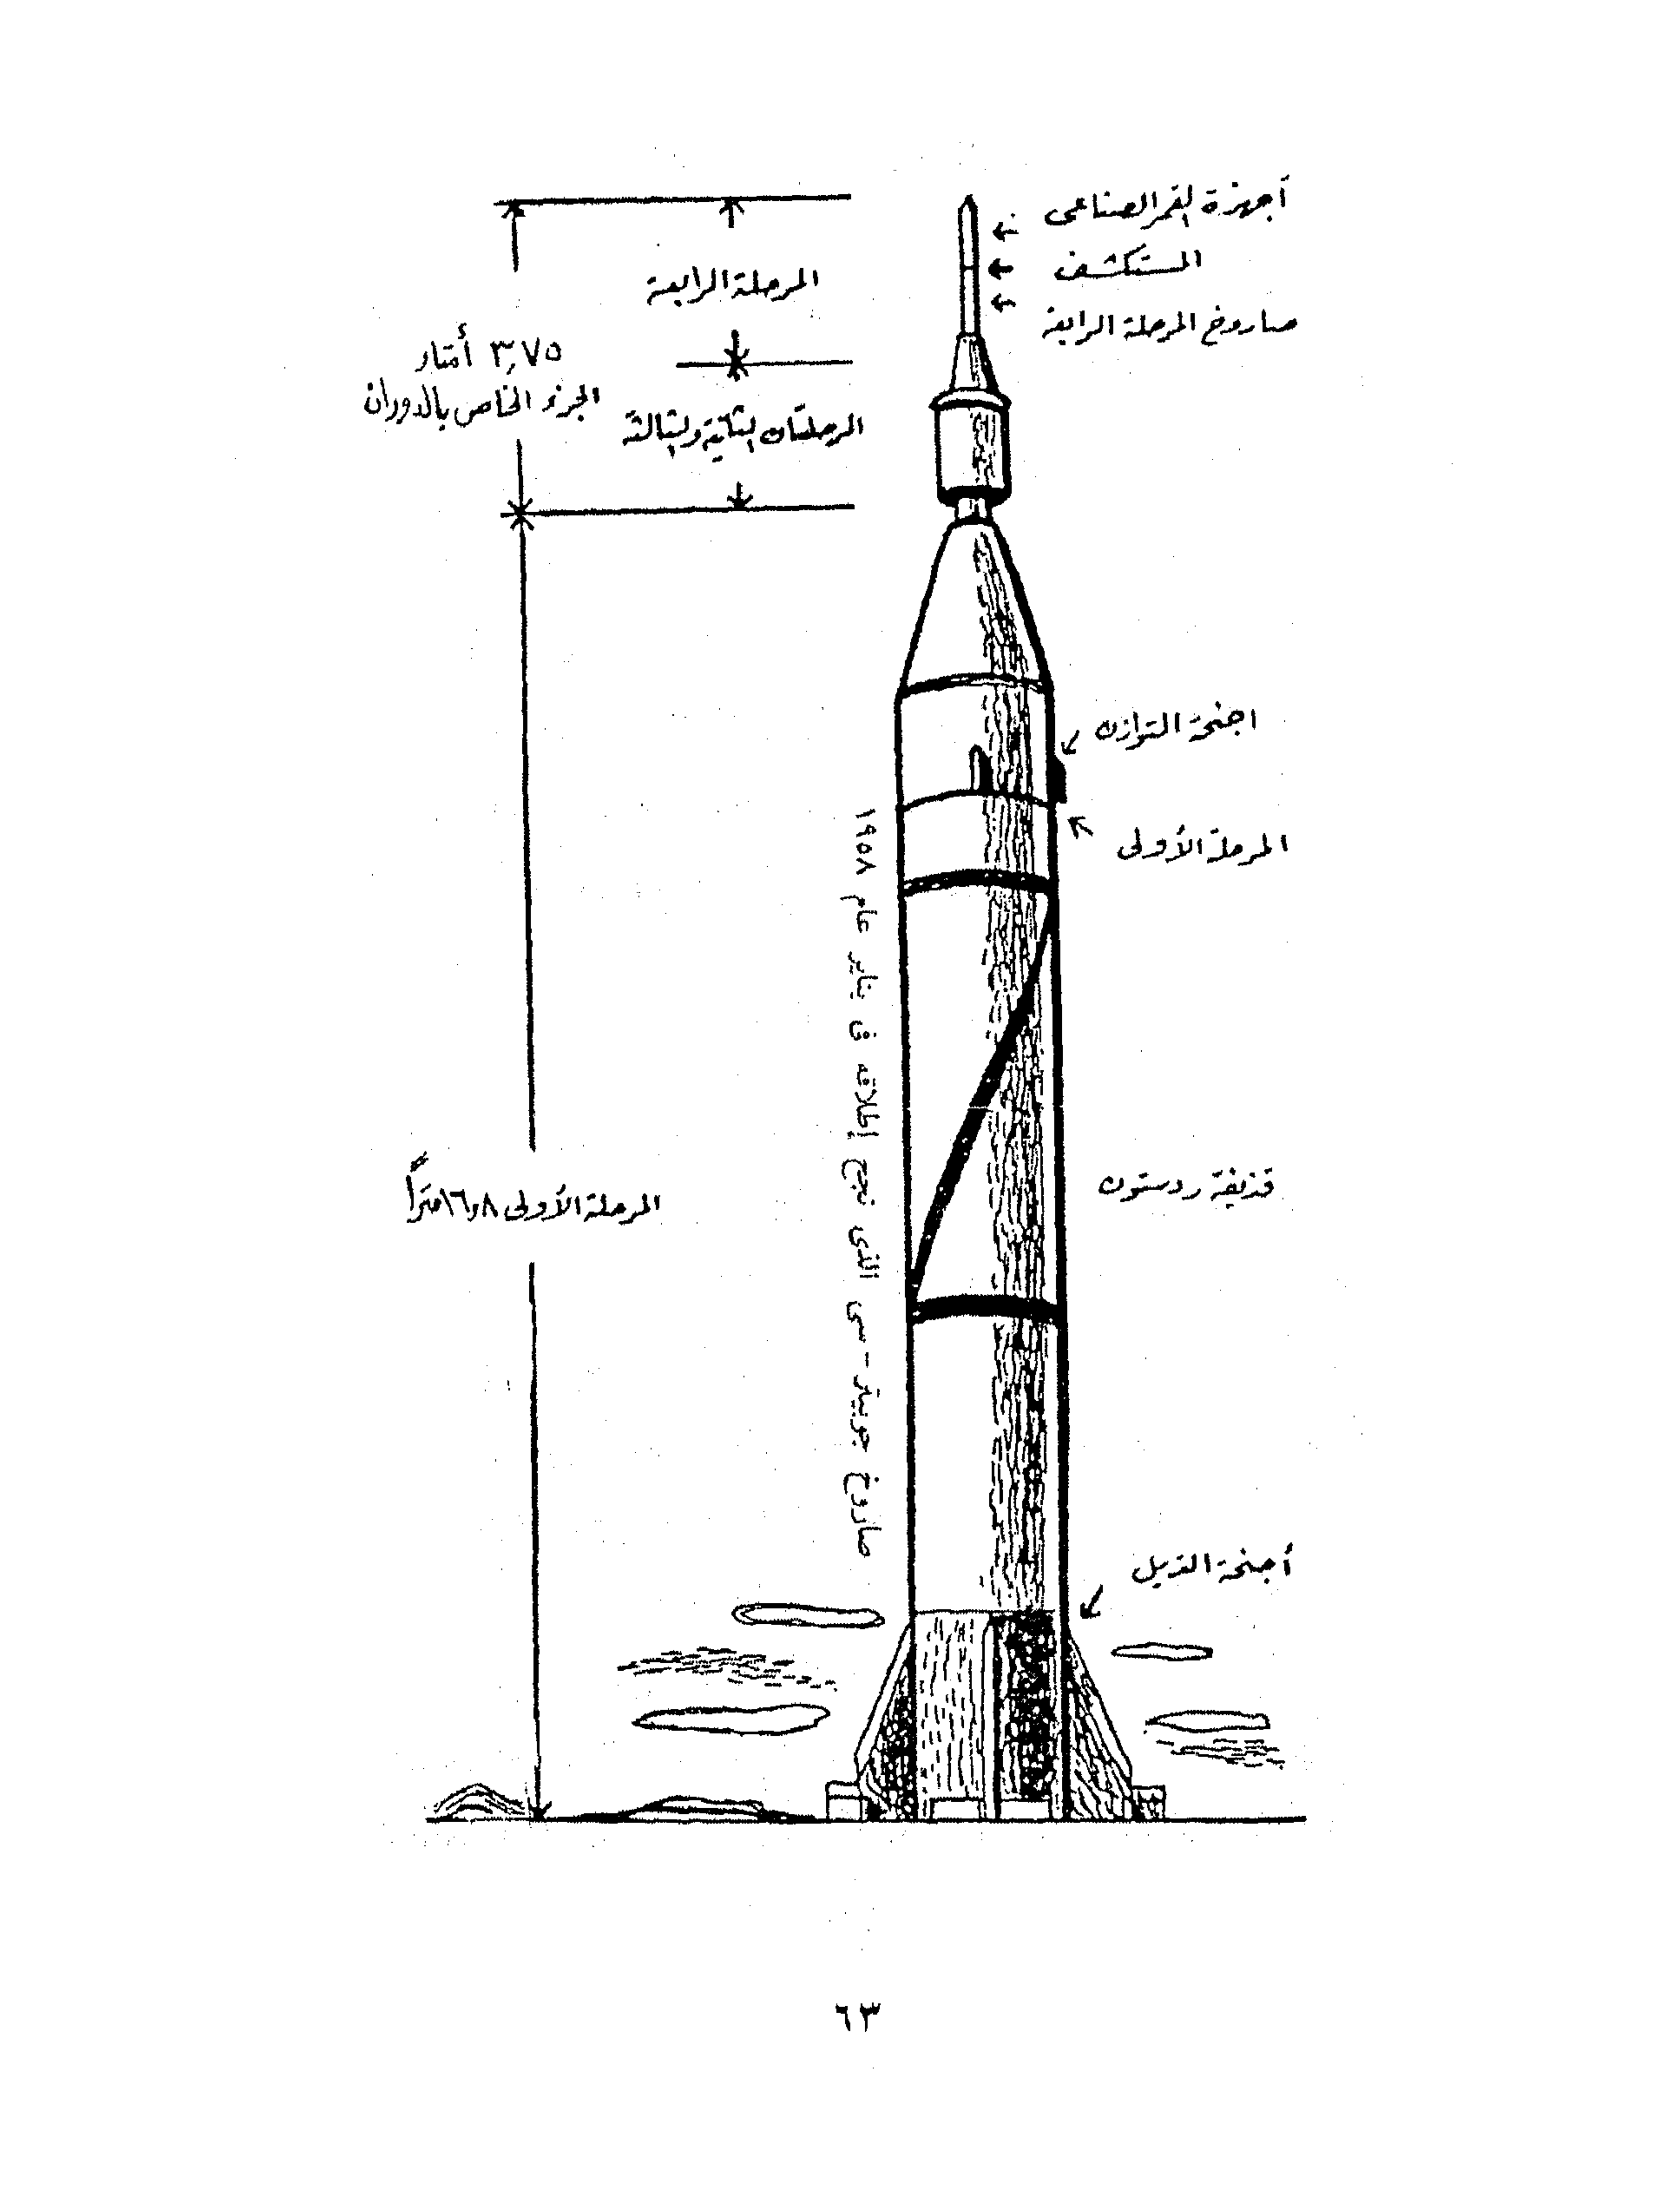 أجهزة القمر الصناعى
المستكشف
صاروخ المرحلة الرابعة
المرحلة الرابعة
٣٫٧٥ أمتار
الجزء الخاص بالدوران
المرحلتان الثانية والثالثة
اجنحة التوازن
المرحلة الأولى
صاروخ جوبيتر - سى الذى نجح إطلاقه فى يناير عام ١٩٥٨
قذيفة ردستون
المرحلة الأولى ١٦٫٨ متراً
أجنحة الذيل
٦٣